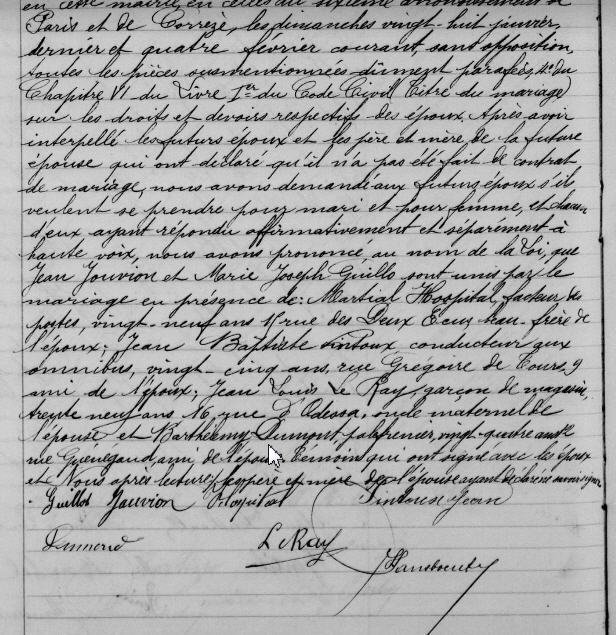 en cette mairie, en celles du sixième arrondissement de
Paris et de Corrèze, les dimanches vingt-huit janvier
dernier et quatre février courant, sans opposition,
toutes les pièces susmentionnées dûment parafées, 4° du
Chapitre VI du Livre Ier du Code Civil (Titre du mariage)
sur les droits et devoirs respectifs des époux. Après avoir
interpellé les futurs époux et les père et mère de la future
épouse qui ont déclaré qu'il n'a pas été fait de contrat
de mariage, nous avons demandé aux futurs époux s'ils
veulent se prendre pour mari et pour femme, et chacun
d'eux ayant répondu affirmativement et séparément à
haute voix, nous avons prononcé, au nom de la Loi, que
Jean Jouvion et Marie Joseph Guillo sont unis par le
mariage en présence de: Martial Hospital, facteur des
postes, vingt-neuf ans, rue des Deux Ecus, beau-frère de
l'époux; Jean Baptiste Sintoux conducteur aux
omnibus, vingt-cinq ans, rue Grégoire de Tours, 9
ami de l'époux; Jean Louis Le Ray, garçon de magasin,
trente neuf ans, 16, rue d'Odessa, oncle maternel de
l'épouse et Barthélemy Dumont, palefrenier, vingt-quatre ans,
rue Guénégaud, ami de l'époux. Témoins qui ont signé avec les époux
et Nous après lecture, les père et mère de l'épouse ayant déclaré ne savoir signer
Guillot Jouvion Hospital Sintoux Jean
Dumond LeRay